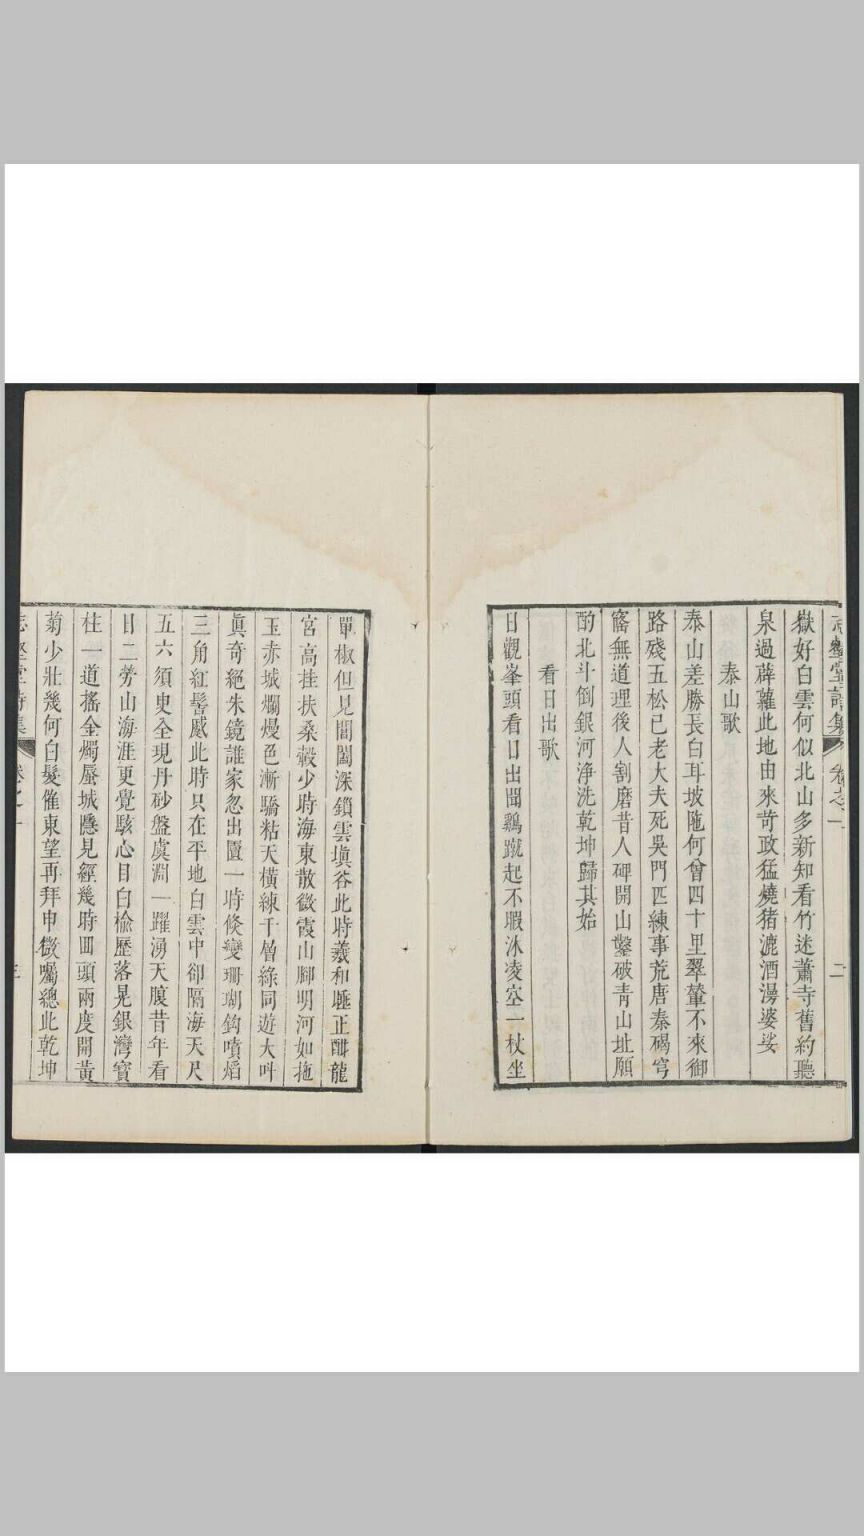 志壑堂詩集 卷之一 二
嶽好白雲何似北山多新知看竹迷蕭寺舊約聽
泉過薜蘿此地由來苛政猛燒猪漉酒漫婆娑
泰山歌
泰山差勝長白耳坡陁何曾四十里翠輦不來御
路殘五松已老大夫死吳門匹練事荒唐秦碣穹
窿無道理後人割磨昔人碑開山鑿破青山址願
酌北斗倒銀河淨洗乾坤歸其始
看日出歌
日觀峯頭看日出聞鷄蹴起不暇沐凌空一杖坐
單椒但見閶闔深鎖雲塡谷此時羲和睡正酣龍
宮高挂扶桑轂少時海東散微霞山腳明河如拖
玉赤城爛熳色漸驕粘天橫練千層綠同遊大呌
眞奇絕朱鏡誰家忽出匵一時倐變珊瑚鈎噴熖
三角紅髻蹙此時只在平地白雲中卻隔海天尺
五六須臾全現丹砂盤虞淵一躍湧天腹昔年看
日二勞山海涯更覺駭心目白楡歷落晃銀灣寶
柱一道搖金燭蜃城隱見經幾時回頭兩度開黃
菊少壯幾何白髮催東望再拜申微囑總此乾坤
志壑堂詩集 卷之一 三